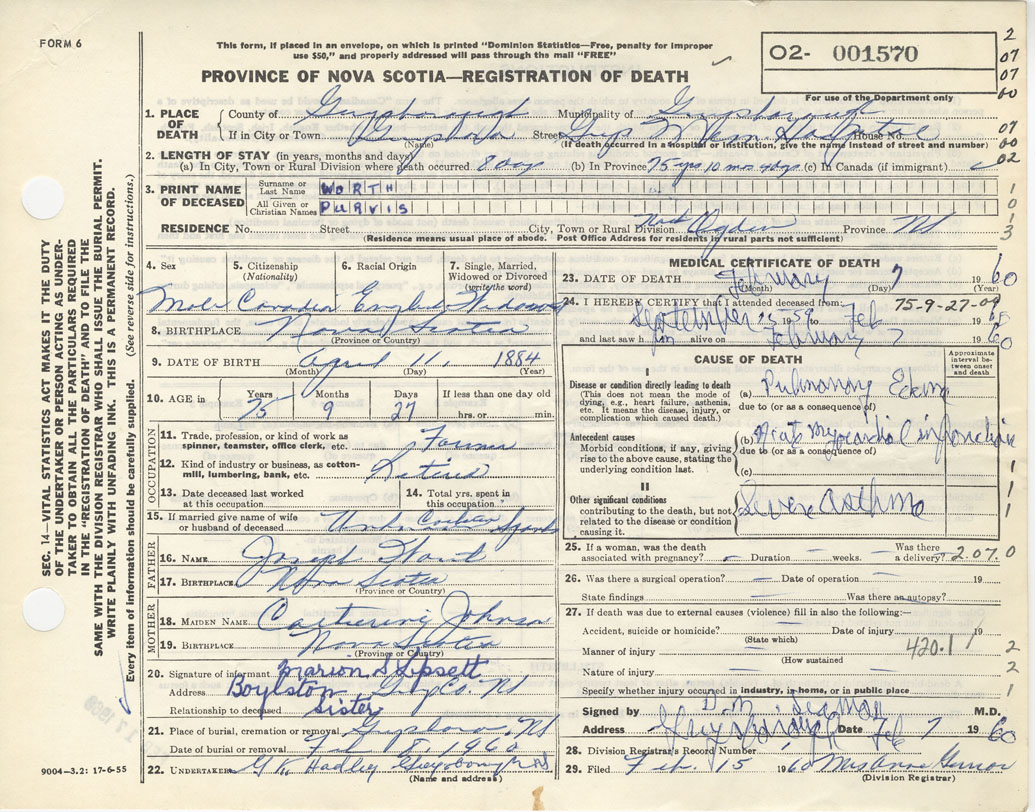 FORM 6
This form, if placed in an envelope, on which is printed "Dominion Statistics—Free, penalty for improper
use $50," and properly addressed will pass through the mail "FREE"
PROVINCE OF NOVA SCOTIA—REGISTRATION OF DEATH
O2- 001570
For use of the Department only
2
07
07
00
07
00
02
1
0
1
3
1. PLACE OF DEATH
County of Guysborough Municipality of Guysborough
If in City or Town Guysboro Street Guys Mem. Hospital House No.
(Name) (If death occurred in a hospital or institution, give the name instead of street and number)
2. LENGTH OF STAY (in years, months and days)
(a) In City, Town or Rural Division where death occurred 8 days (b) In Province 75 yrs 10 mos 4 dys (c) In Canada (if immigrant)
3. PRINT NAME OF DECEASED
Surname or Last Name WORTH
All Given or Christian Names PURVIS
RESIDENCE No. Street City, Town or Rural Division Ogden Province NS
(Residence means usual place of abode. Post Office Address for residents in rural parts not sufficient)
4. Sex 5. Citizenship (Nationality) 6. Racial Origin 7. Single, Married, Widowed or Divorced (write the word)
Male Canadian English Widowed
8. BIRTHPLACE Nova Scotia
(Province or Country)
9. DATE OF BIRTH April 11 1884
(Month) (Day) (Year)
10. AGE in Years Months Days If less than one day old
75 9 27 hrs. or min.
OCCUPATION
11. Trade, profession, or kind of work as spinner, teamster, office clerk, etc. Farmer
12. Kind of industry or business, as cotton-mill, lumbering, bank, etc. Retired
13. Date deceased last worked at this occupation 14. Total yrs. spent in this occupation
15. If married give name of wife or husband of deceased
FATHER
16. NAME Joseph
17. BIRTHPLACE Nova Scotia
(Province or Country)
MOTHER
18. MAIDEN NAME Catherine Johnson
19. BIRTHPLACE Nova Scotia
(Province or Country)
20. Signature of informant Marion S Lipsett
Address Boylston Guys Co. NS
Relationship to deceased Sister
21. Place of burial, cremation or removal Guysboro NS
Date of burial or removal Feb 8, 1960
22. UNDERTAKER G K Hadley Guysborough NS
(Name and address)
9004—3.2: 17-6-55
MEDICAL CERTIFICATE OF DEATH
23. DATE OF DEATH February 7 1960
(Month) (Day) (Year)
24. I HEREBY CERTIFY that I attended deceased from:
75-9-27-09
September 25 1959 to Feb 1960
and last saw him alive on February 7 1960
CAUSE OF DEATH
Approximate interval between onset and death
I
Disease or condition directly leading to death
(This does not mean the mode of dying, e.g., heart failure, asthenia, etc. It means the disease, injury, or complication which caused death.)
(a) Pulmonary
due to (or as a consequence of)
Antecedent causes
Morbid conditions, if any, giving rise to the above cause, stating the underlying condition last.
(b) myocardial infarction
due to (or as a consequence of)
(c)
II
Other significant conditions
contributing to the death, but not related to the disease or condition causing it.
Severe asthma
1
1
1
25. If a woman, was the death associated with pregnancy? Duration weeks. Was there a delivery? 2.07.0
26. Was there a surgical operation? Date of operation 19
State findings Was there an autopsy?
27. If death was due to external causes (violence) fill in also the following:—
Accident, suicide or homicide? Date of injury 19
(State which)
Manner of injury 420.1
(How sustained)
Nature of injury
Specify whether injury occurred in industry, in home, or in public place
2
2
1
Signed by M.D.
Address Guysborough Date Feb 7 1960
28. Division Registrar's Record Number
29. Filed Feb. 15 1960 Mrs
(Division Registrar)
SEC. 14—VITAL STATISTICS ACT MAKES IT THE DUTY
OF THE UNDERTAKER OR PERSON ACTING AS UNDER-
TAKER TO OBTAIN ALL THE PARTICULARS REQUIRED
IN THE "REGISTRATION OF DEATH" AND TO FILE THE
SAME WITH THE DIVISION REGISTRAR WHO SHALL ISSUE THE BURIAL PERMIT.
WRITE PLAINLY WITH UNFADING INK. THIS IS A PERMANENT RECORD.
Every item of information should be carefully supplied. (See reverse side for instructions.)